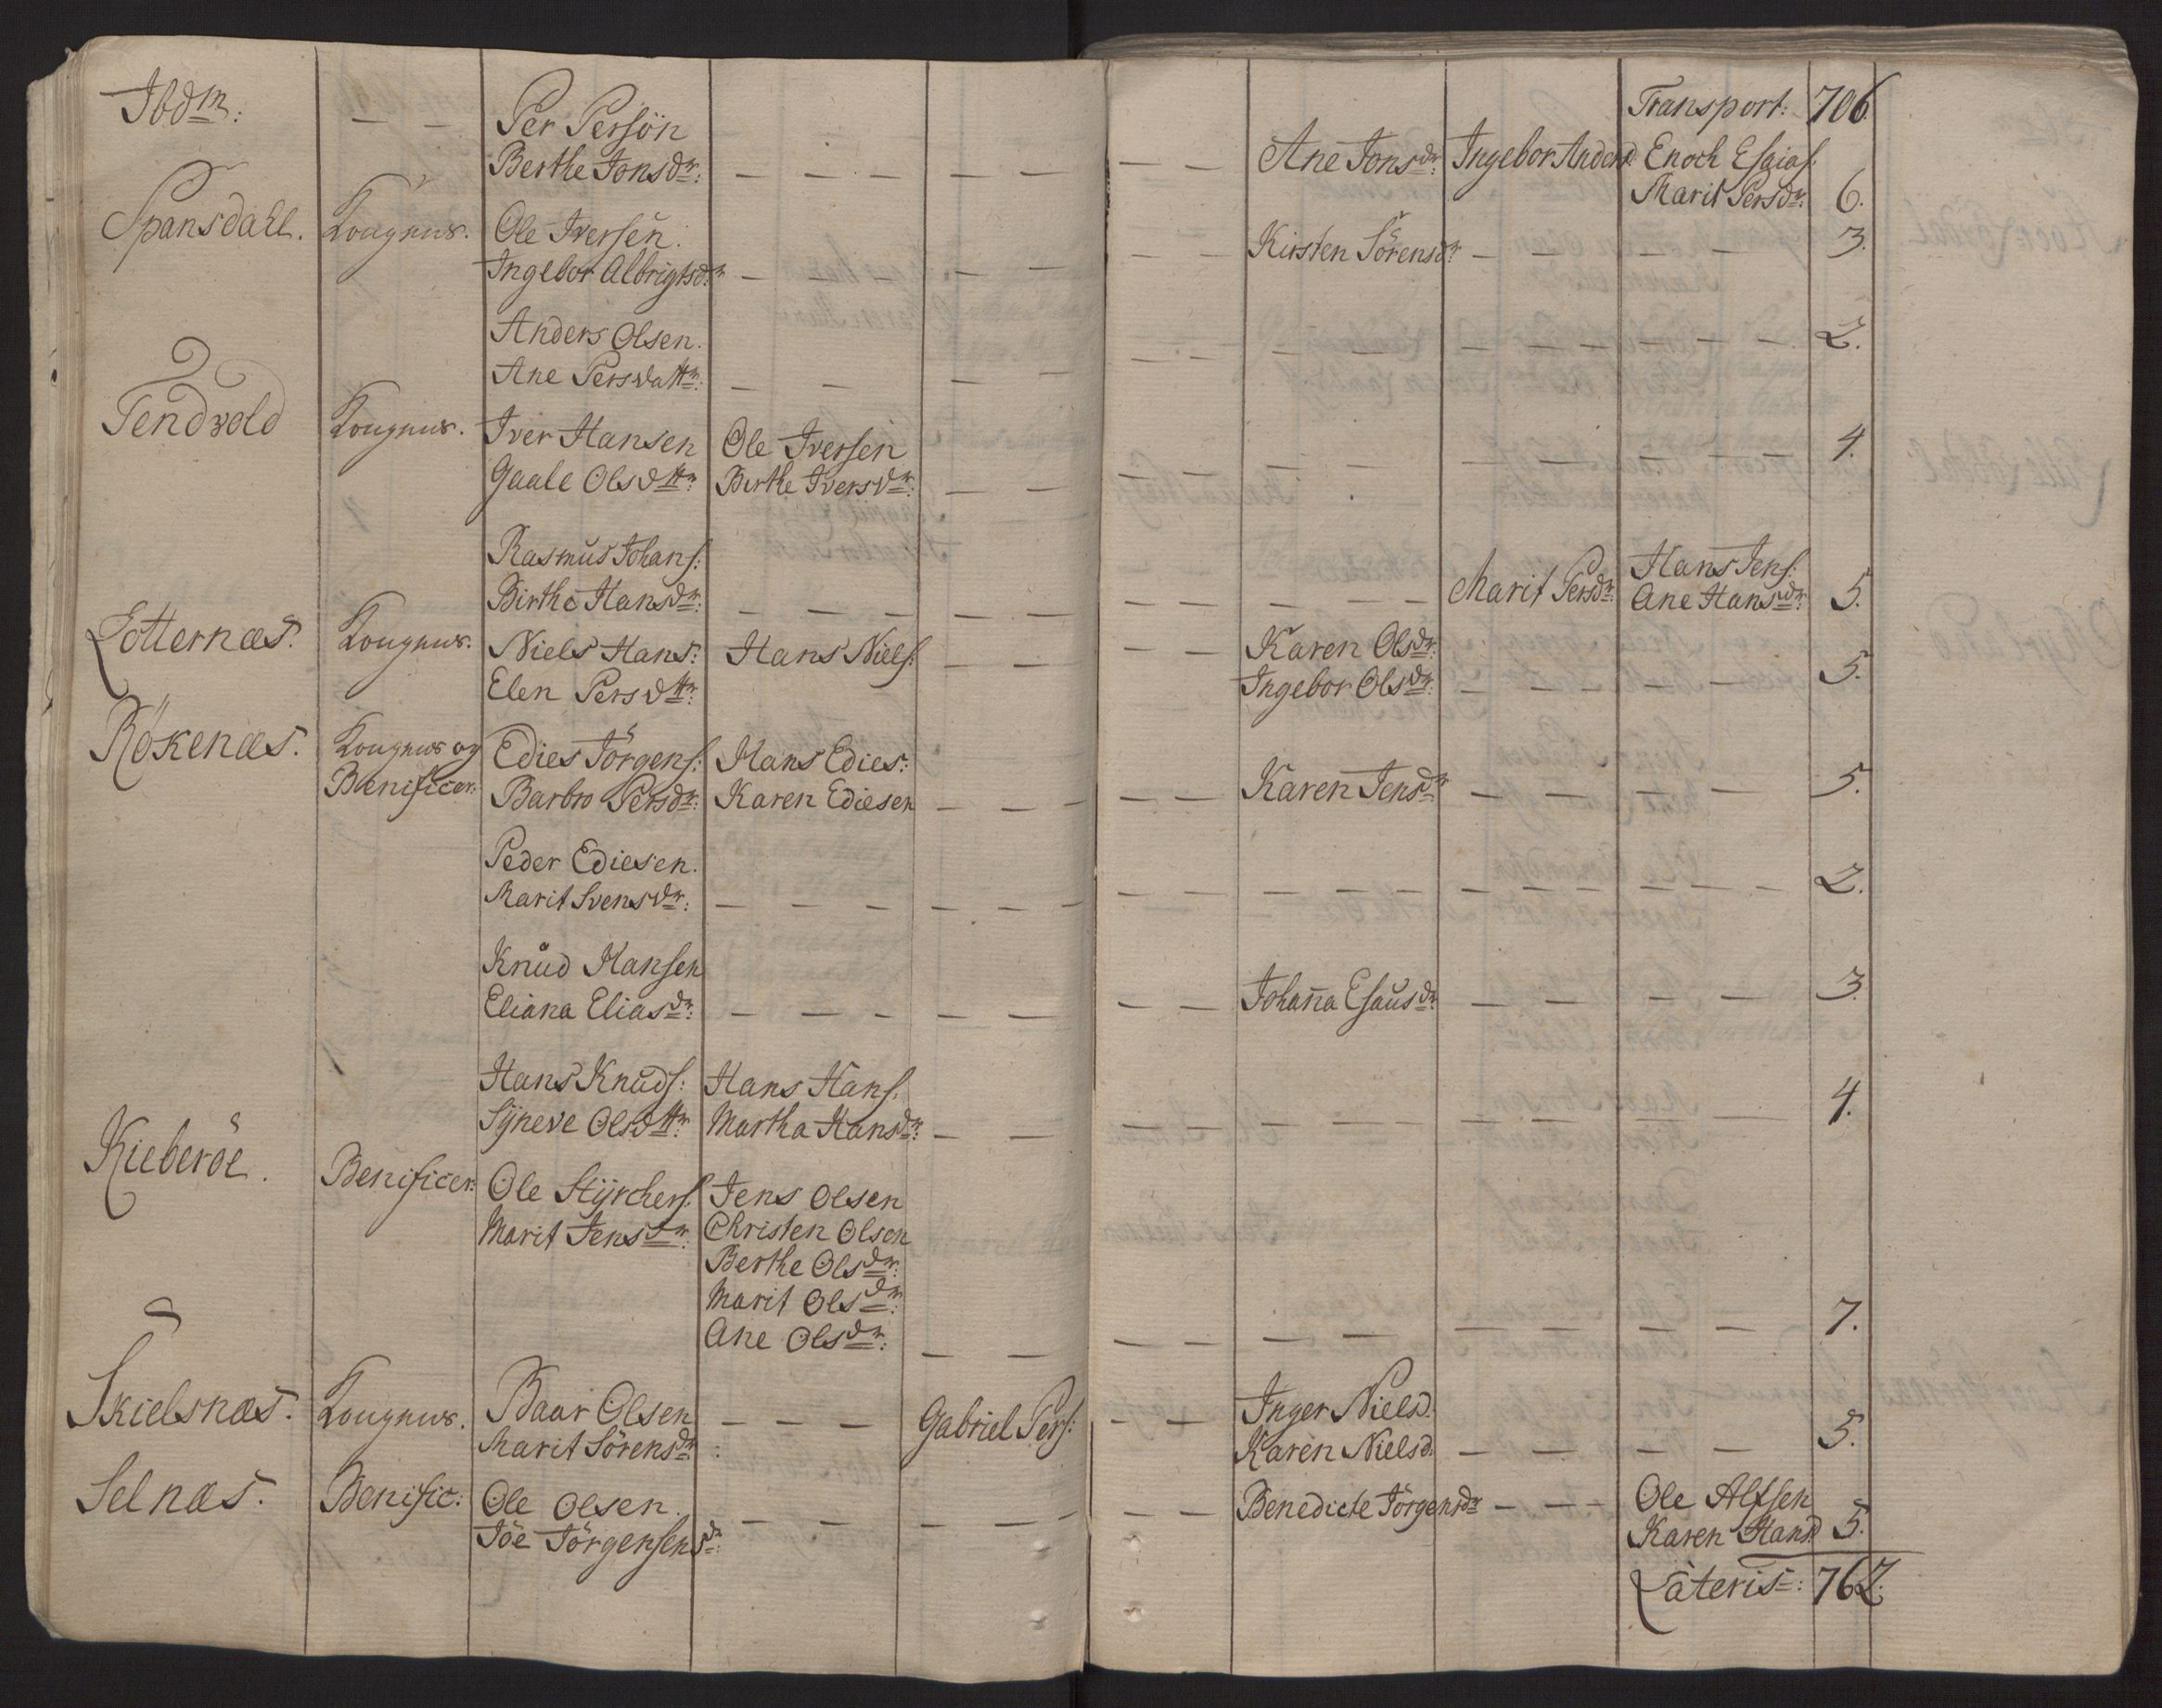 Transport: 706.
Ibdm: — — Per Persön
Berthe Jonsdr: — — — — — — — Ane Jonsdr: Ingebor Andersd: Enoch Esaias:
Marit Persdr: 6.
Spansdall. Kougnus. Ole Iversen. Kirsten Sörensdr — — — — 3.
Ingebor Albrigtsdr — — — — —
Anders Olsen.
Ane Persdattr: — — — — — — — — — — — — 2.
Tendvold Kougnus. Iver Hansen Ole Iversen
Gaale Olsdttr: Birthe Iversdr: — — — — — — — — — — 4.
Rasmus Johans:
Birthe Hansdr: — — — — — — — — — Marit Persdr: Hans Jens:
Ane Hansdr: 5.
Lotternæs. Kougnus. Niels Hans: Hans Niels: — — — — Karen Olsdr:
Elen Persdttr: Ingebor Olsdr: — — — — 5.
Rökenæs. Kougnus og Edies Jörgens: Hans Edies:
Benificer: Barbro Persdr: Karen Ediesen — — — — — Karen Jensdr — — — — 5.
Peder Ediesen.
Marit Svensdr: — — — — — — — — — — — — — 2.
Knud Hansen
Eliana Eliasdr: — — — — — — — Johanna Esausdr — — — — 3.
Hans Knuds: Hans Hans:
Syneve Olsdttr: Martha Hansdr: — — — — — — — — — — 4.
Kieberöe. Benificer: Ole Styrchers: Jens Olsen
Marit Jensdr: Christen Olsen
Berthe Olsdr:
Marit Olsdr:
Ane Olsdr: — — — — — — — — — — 7.
Skielsnæs. Kougnus. Baar Olsen — — — Gabriel Pers: — — Inger Nielsd:
Marit Sörensdr: Karen Nielsd: — — — — 5.
Selnæs. Benific: Ole Olsen. — — — — — — — Benedicte Jörgensdr — — — Ole Alfsen
Jöe Jörgensensdr: Karen Hansd 5.
Lateris: 762.